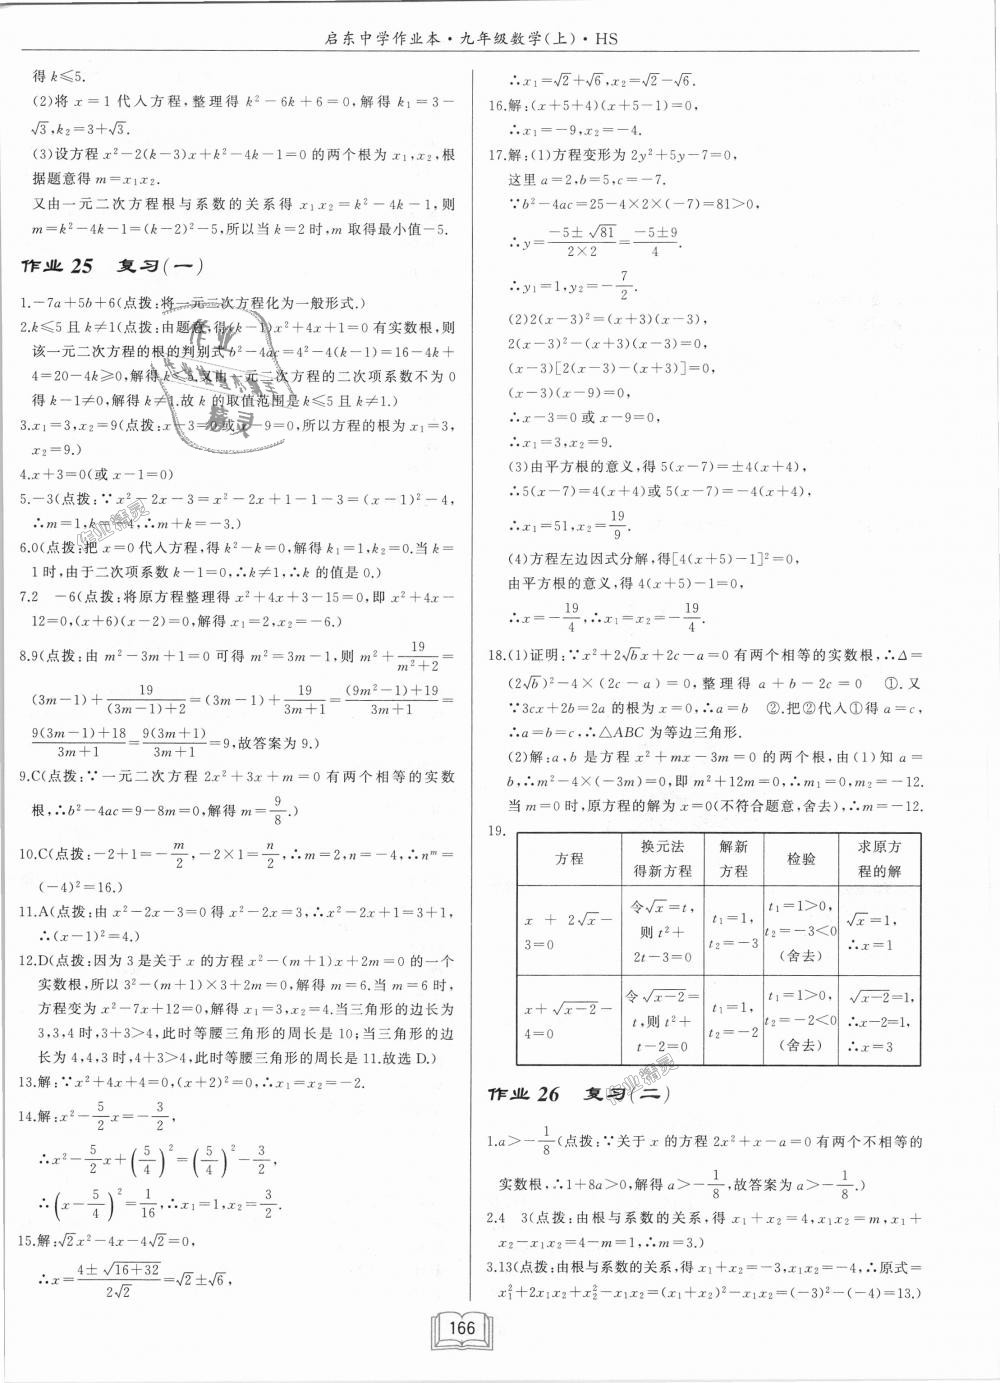 启东中学作业本·九年级数学(上)·HS
得k≤5.
(2)将x=1代入方程,整理得k²-6k+6=0,解得k₁=3-
√3,k₂=3+√3.
(3)设方程x²-2(k-3)x+k²-4k-1=0的两个根为x₁,x₂,根
据题意得m=x₁x₂.
又由一元二次方程根与系数的关系得x₁x₂=k²-4k-1,则
m=k²-4k-1=(k-2)²-5,所以当k=2时,m取得最小值-5.
作业25 复习(一)
1.-7a+5b+6(点拨:将一元二次方程化为一般形式.)
2.k≤5且k≠1(点拨:由题意,得(k-1)x²+4x+1=0有实数根,则
该一元二次方程的根的判别式b²-4ac=4²-4(k-1)=16-4k+
4=20-4k≥0,解得k≤5.又由一元二次方程的二次项系数不为0
得k-1≠0,解得k≠1.故k的取值范围是k≤5且k≠1.)
3.x₁=3,x₂=9(点拨:x-3=0或x-9=0,所以方程的根为x₁=3,
x₂=9.)
4.x+3=0(或x-1=0)
5.-3(点拨:∵x²-2x-3=x²-2x+1-1-3=(x-1)²-4,
∴m=1,k=-4,∴m+k=-3.)
6.0(点拨:把x=0代入方程,得k²-k=0,解得k₁=1,k₂=0.当k=
1时,由于二次项系数k-1=0,∴k≠1,∴k的值是0.)
7.2 -6(点拨:将原方程整理得x²+4x+3-15=0,即x²+4x-
12=0,(x+6)(x-2)=0,解得x₁=2,x₂=-6.)
8.9(点拨:由m²-3m+1=0可得m²=3m-1,则m²+19/(m²+2)=
(3m-1)+19/((3m-1)+2)=(3m-1)+19/(3m+1)=((9m²-1)+19)/(3m+1)=
(9(3m-1)+18)/(3m+1)=9(3m+1)/(3m+1)=9,故答案为9.)
9.C(点拨:∵一元二次方程2x²+3x+m=0有两个相等的实数
根,∴b²-4ac=9-8m=0,解得m=9/8.)
10.C(点拨:-2+1=-m/2,-2×1=n/2,∴m=2,n=-4,∴nᵐ=
(-4)²=16.)
11.A(点拨:由x²-2x-3=0得x²-2x=3,∴x²-2x+1=3+1,
∴(x-1)²=4.)
12.D(点拨:因为3是关于x的方程x²-(m+1)x+2m=0的一个
实数根,所以3²-(m+1)×3+2m=0,解得m=6.当m=6时,
方程变为x²-7x+12=0,解得x₁=3,x₂=4.当三角形的边长为
3,3,4时,3+3>4,此时等腰三角形的周长是10;当三角形的边
长为4,4,3时,4+3>4,此时等腰三角形的周长是11.故选D.)
13.解:∵x²+4x+4=0,(x+2)²=0,∴x₁=x₂=-2.
14.解:x²-5/2x=-3/2,
∴x²-5/2x+(5/4)²=(5/4)²-3/2,
∴(x-5/4)²=1/16,∴x₁=1,x₂=3/2.
15.解:√2x²-4x-4√2=0,
∴x=(4±√(16+32))/(2√2)=√2±√6,
∴x₁=√2+√6,x₂=√2-√6.
16.解:(x+5+4)(x+5-1)=0,
∴x₁=-9,x₂=-4.
17.解:(1)方程变形为2y²+5y-7=0,
这里a=2,b=5,c=-7.
∵b²-4ac=25-4×2×(-7)=81>0,
∴y=(-5±√81)/(2×2)=(-5±9)/4.
∴y₁=1,y₂=-7/2.
(2)2(x-3)²=(x+3)(x-3),
2(x-3)²-(x+3)(x-3)=0,
(x-3)[2(x-3)-(x+3)]=0,
(x-3)(x-9)=0,
∴x-3=0或x-9=0,
∴x₁=3,x₂=9.
(3)由平方根的意义,得5(x-7)=±4(x+4),
∴5(x-7)=4(x+4)或5(x-7)=-4(x+4),
∴x₁=51,x₂=19/9.
(4)方程左边因式分解,得[4(x+5)-1]²=0,
由平方根的意义,得4(x+5)-1=0,
∴x=-19/4,∴x₁=x₂=-19/4.
18.(1)证明:∵x²+2√bx+2c-a=0有两个相等的实数根,∴Δ=
(2√b)²-4×(2c-a)=0,整理得a+b-2c=0 ①.又
∵3cx+2b=2a的根为x=0,∴a=b ②.把②代入①得a=c,
∴a=b=c,∴△ABC为等边三角形.
(2)解:a,b是方程x²+mx-3m=0的两个根,由(1)知a=
b,∴m²-4×(-3m)=0,即m²+12m=0,∴m₁=0,m₂=-12.
当m=0时,原方程的解为x=0(不符合题意,舍去),∴m=-12.
19.
方程 换元法得新方程 解新方程 检验 求原方程的解
x+2√x-3=0 令√x=t,则t²+2t-3=0 t₁=1,t₂=-3 t₁=1>0,t₂=-3<0(舍去) √x=1,∴x=1
x+√(x-2)-4=0 令√(x-2)=t,则t²+t-2=0 t₁=1,t₂=-2 t₁=1>0,t₂=-2<0(舍去) √(x-2)=1,∴x-2=1,∴x=3
作业26 复习(二)
1.a>-1/8(点拨:∵关于x的方程2x²+x-a=0有两个不相等的
实数根,∴1+8a>0,解得a>-1/8,故答案为a>-1/8.)
2.4 3(点拨:由根与系数的关系,得x₁+x₂=4,x₁x₂=m,x₁+
x₂-x₁x₂=4-m=1,∴m=3.)
3.13(点拨:由根与系数的关系,得x₁+x₂=-3,x₁x₂=-4,∴原式=
x₁²+2x₁x₂+x₂²-x₁x₂=(x₁+x₂)²-x₁x₂=(-3)²-(-4)=13.)
166